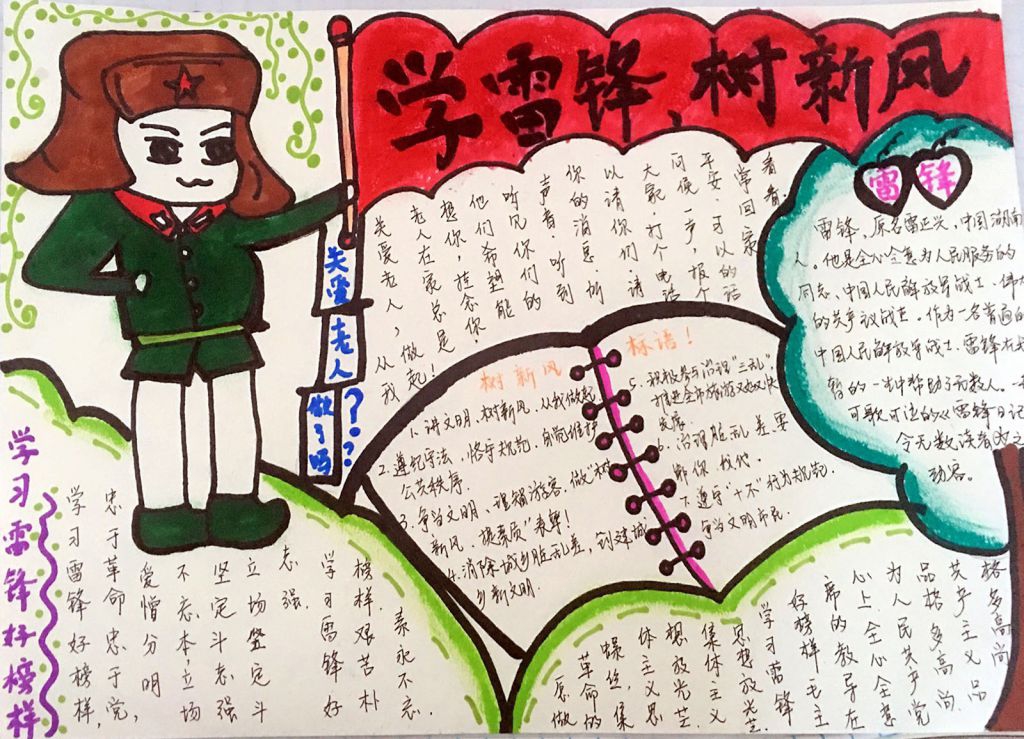 学雷锋、树新风
关爱
老人
做了吗
???
关爱老人，从我
做起！
老人在家总是
想你，挂念你
他们希望你能
听见你们的
声音，听到
你的消息，所
以请你们请
大家打个电话
问候一声，报个
平安，可以的话
常回家
看看
雷锋
雷锋，原名雷正兴，中国湖南
人。他是全心全意为人民服务的
同志、中国人民解放军战士、伟大
的共产议战士。作为一名普通的
中国人民解放军战士，雷锋在
暂的一生中帮助了无数人。
可歌可泣的《雷锋日记
令无数读者为之
动容。
树新风
标语！
1. 讲文明、树新风，从我做起
2. 遵纪守法、恪守规范，自觉维护
公共秩序
3. 争当文明、理智游客，做"树
新风、提素质"表率！
4. 消除城乡脏乱差，创建城
乡新文明.
5. 积极参与治理"三乱"
推进全市旅游又好又快
发展.
6. 治理脏乱差要
靠你我他.
7. 遵守"十不"行为规范
争当文明市民.
学习雷锋好榜样
学习雷锋好榜样，
忠于革命忠于党，
爱憎分明
不忘本，立场
坚定斗志强
立场坚定斗
志强.
学习雷锋好
榜样.艰苦朴
素永不忘.
愿做
革命的
螺丝，集
体主义思
想放光芒
集体主义
思想放光芒
学习雷锋
好榜样 毛主
席的教导在
心上全心全意
为人民共产党
品格多高尚
共产主义品
格多高尚